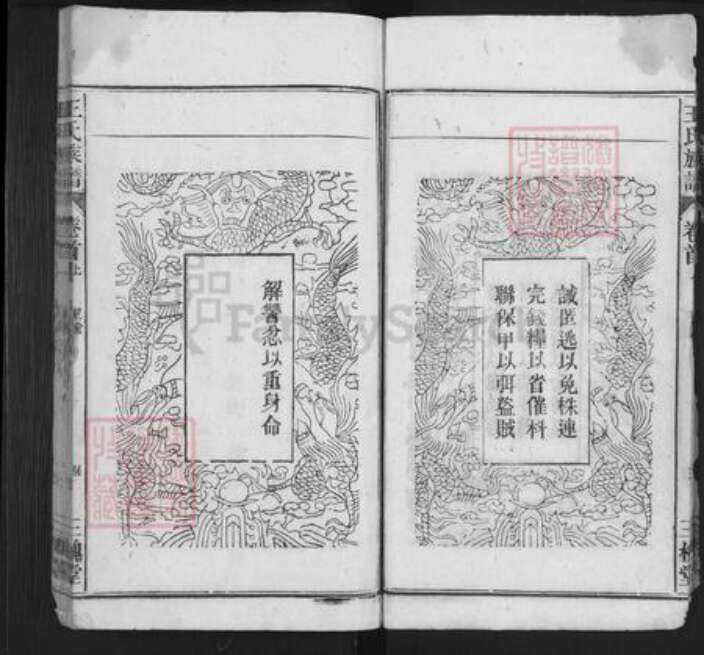 誡匿逃以免株連
完錢糧以省催科
聯保甲以弭盜賊
解讐忿以重身命
王氏族譜
卷首
三槐堂
王氏族譜
卷首上
三槐堂
FamilySearch